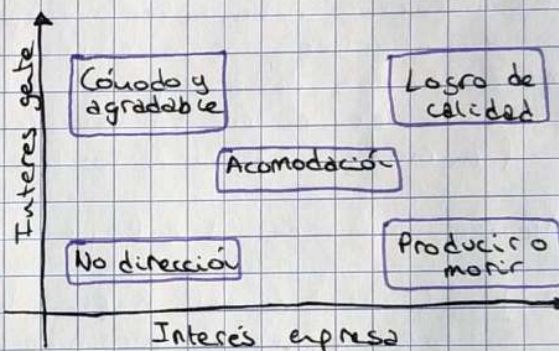 Interes gente
Cómodo y
agradable
Logro de
calidad
Acomodación
No dirección
Producir o
morir
Interés empresa